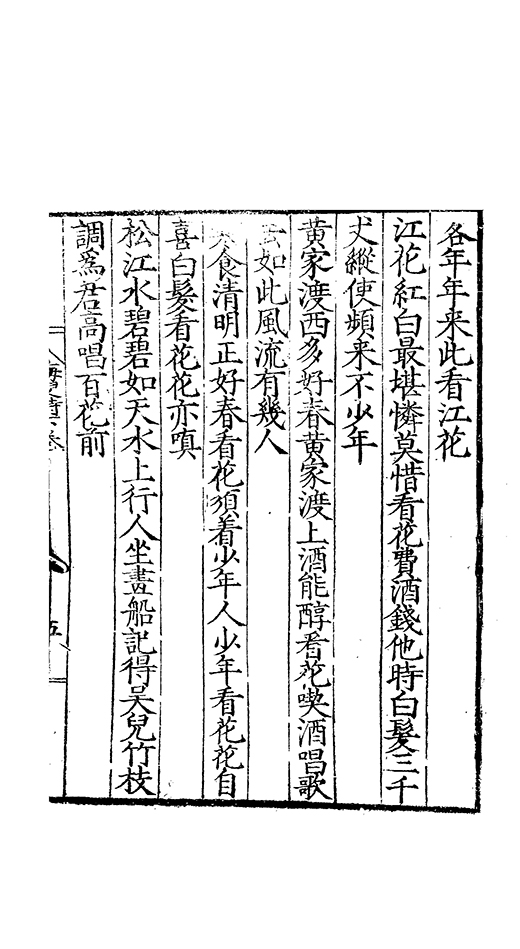 各年年来此看江花
江花紅白最堪憐莫惜看花費酒錢他時白髮三千
丈縱使頻来不少年
黃家渡西多好春黃家渡上酒能醇看花喫酒唱歌
去如此風流有幾人
食清明正好春看花須着少年人少年看花花自
喜白髮看花花亦嗔
松江水碧碧如天水上行人坐畫船記得吴兒竹枝
調為君高唱百花前
五